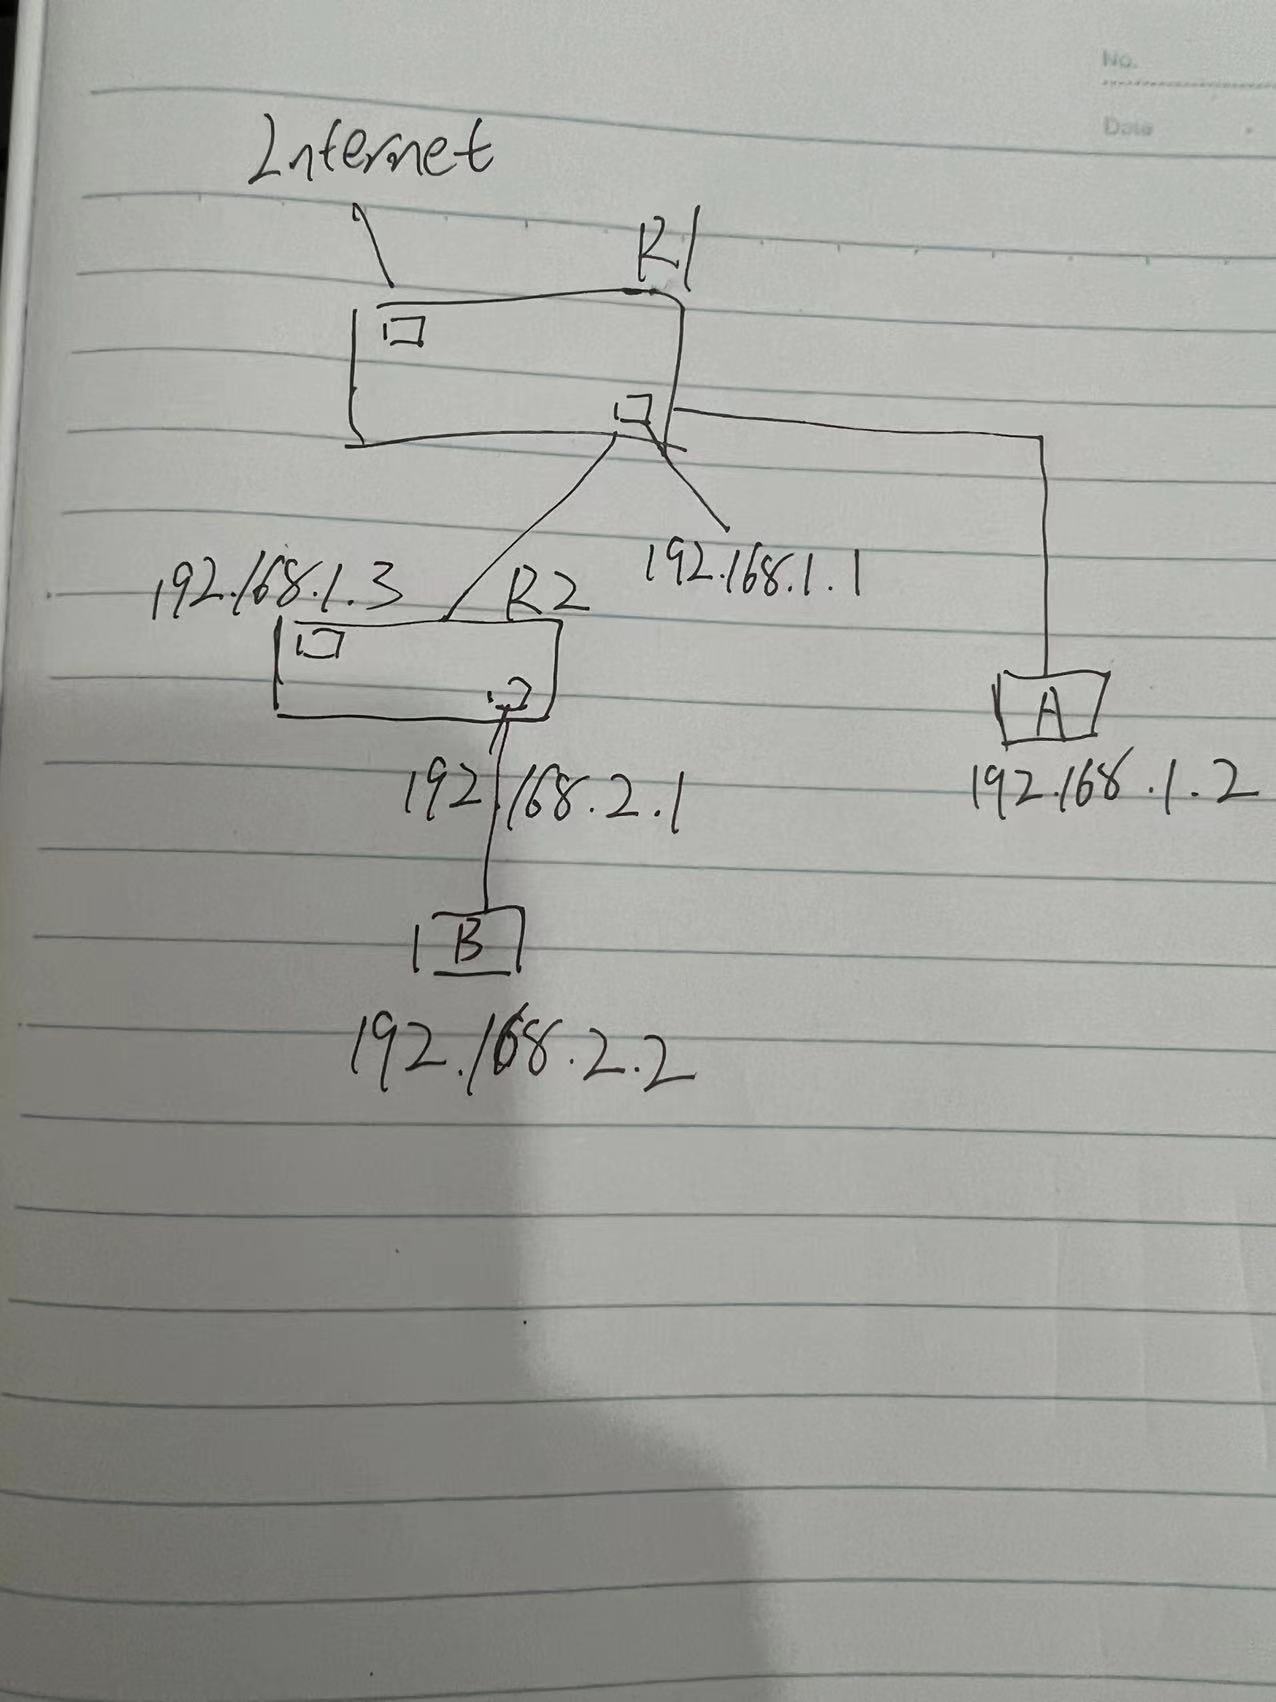 No.
Date
Internet
R1
192.168.1.3
R2
192.168.1.1
A
192.168.2.1
192.168.1.2
B
192.168.2.2